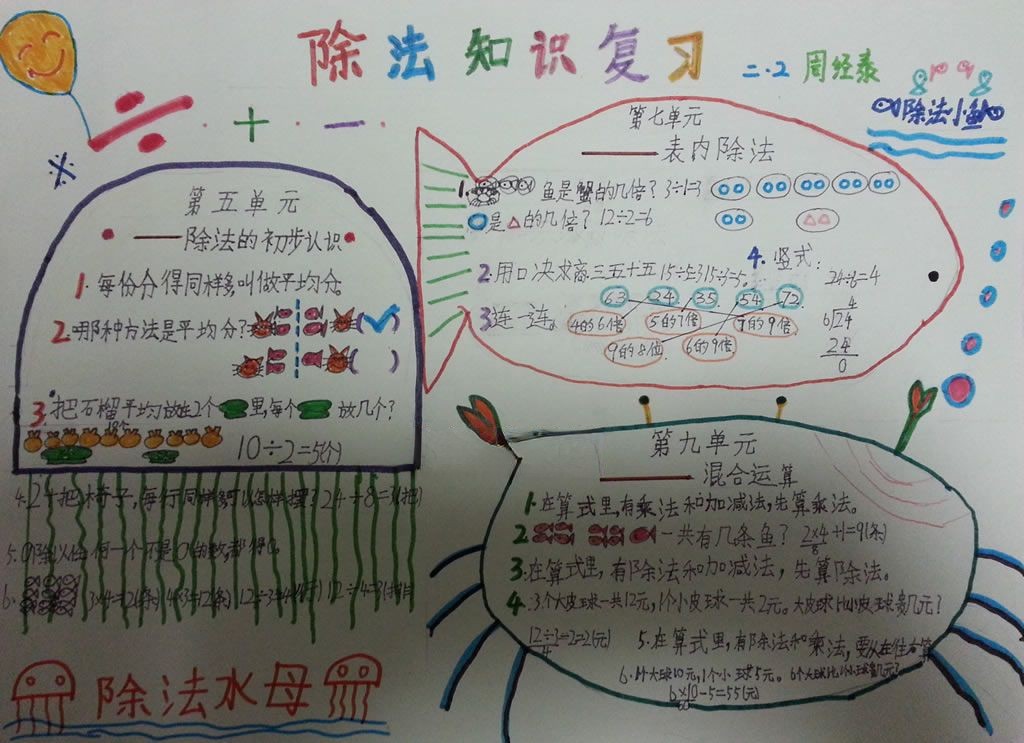 除法知识复习
二.2 周经泰
除法小鱼
÷ · + · − · ×
第五单元
——除法的初步认识
1.每份分得同样多,叫做平均分。
2.哪种方法是平均分?(✓)
( )
3.把石榴平均放在2个里,每个放几个?
10÷2=5(个)
4.24把椅子,每行同样多,可以怎样摆?24÷8=3(把)
5.0除以任何一个不是0的数,都得0。
6.3×4=12(条) 4×3=12(条) 12÷3=4 12÷4=3
除法水母
第七单元
——表内除法
1.鱼是蟹的几倍?3÷1=3
是△的几倍?12÷2=6
2.用口决求商三五十五15÷5=3 15÷3=5。
3.连一连。
63 24 35 54 72
4的6倍 5的7倍 7的9倍
9的8倍 6的9倍
4.竖式:
24÷6=4
4
6 24
24
0
第九单元
——混合运算
1.在算式里,有乘法和加减法,先算乘法。
2.一共有几条鱼?2×4+1=9(条)
8
3.在算式里,有除法和加减法,先算除法。
4.3个大皮球一共12元,1个小皮球一共2元。大皮球比小皮球贵几元?
12÷3-2=2(元)
4
5.在算式里,有除法和乘法,要从左往右算
6.1个大球10元,1个小球5元。6个大球比1个小球贵几元?
6×10-5=55(元)
60